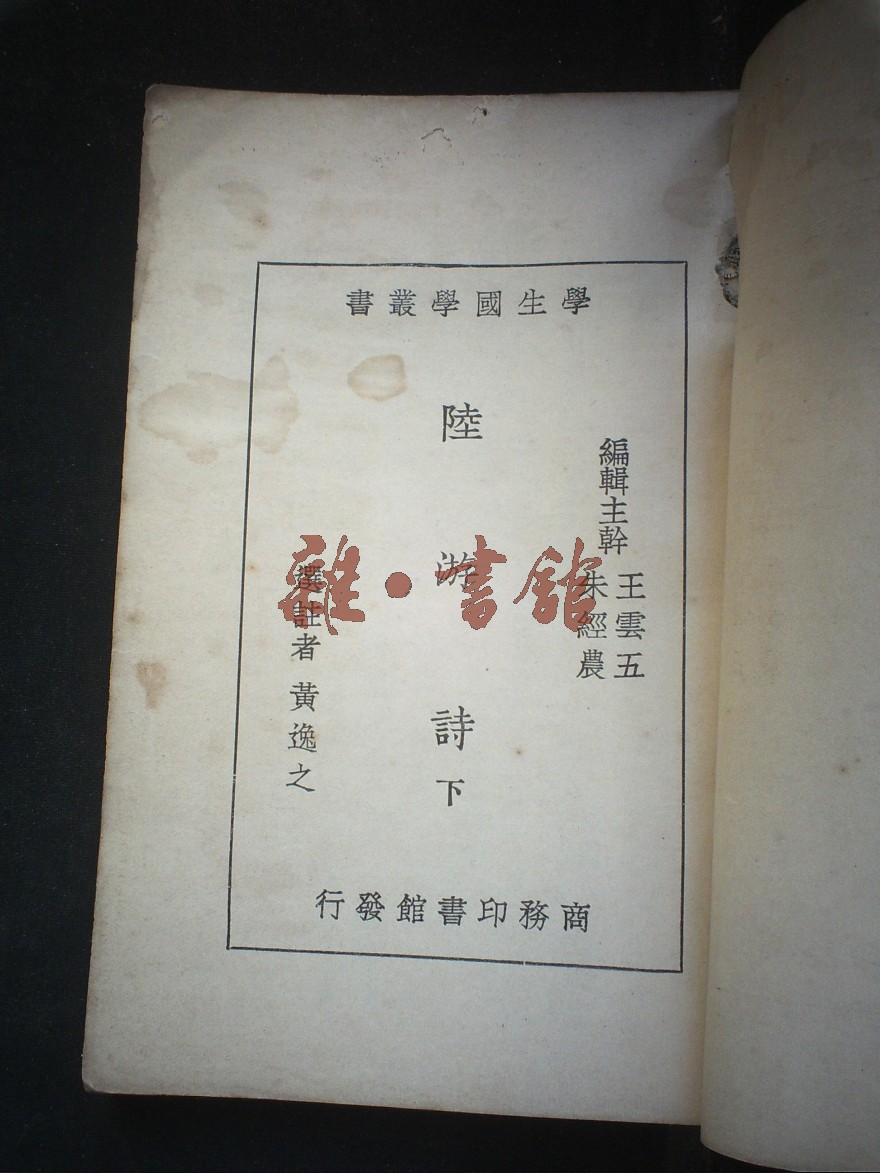 學生國學叢書
編輯主幹 王雲五
朱經農
陸游詩下
選註者 黃逸之
商務印書館發行
雜·書館